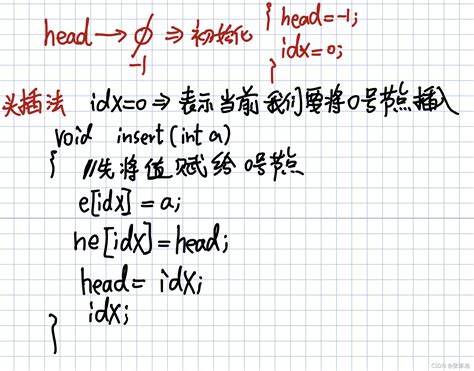 head → ∅ ⇒ 初始化 { head=-1;
-1 idx=0;
}
头插法 idx=0 ⇒ 表示当前我们要将0号节点插入
void insert(int a)
{ //先将值赋给0号节点
e[idx] = a;
ne[idx]=head;
head= idx;
idx;
}